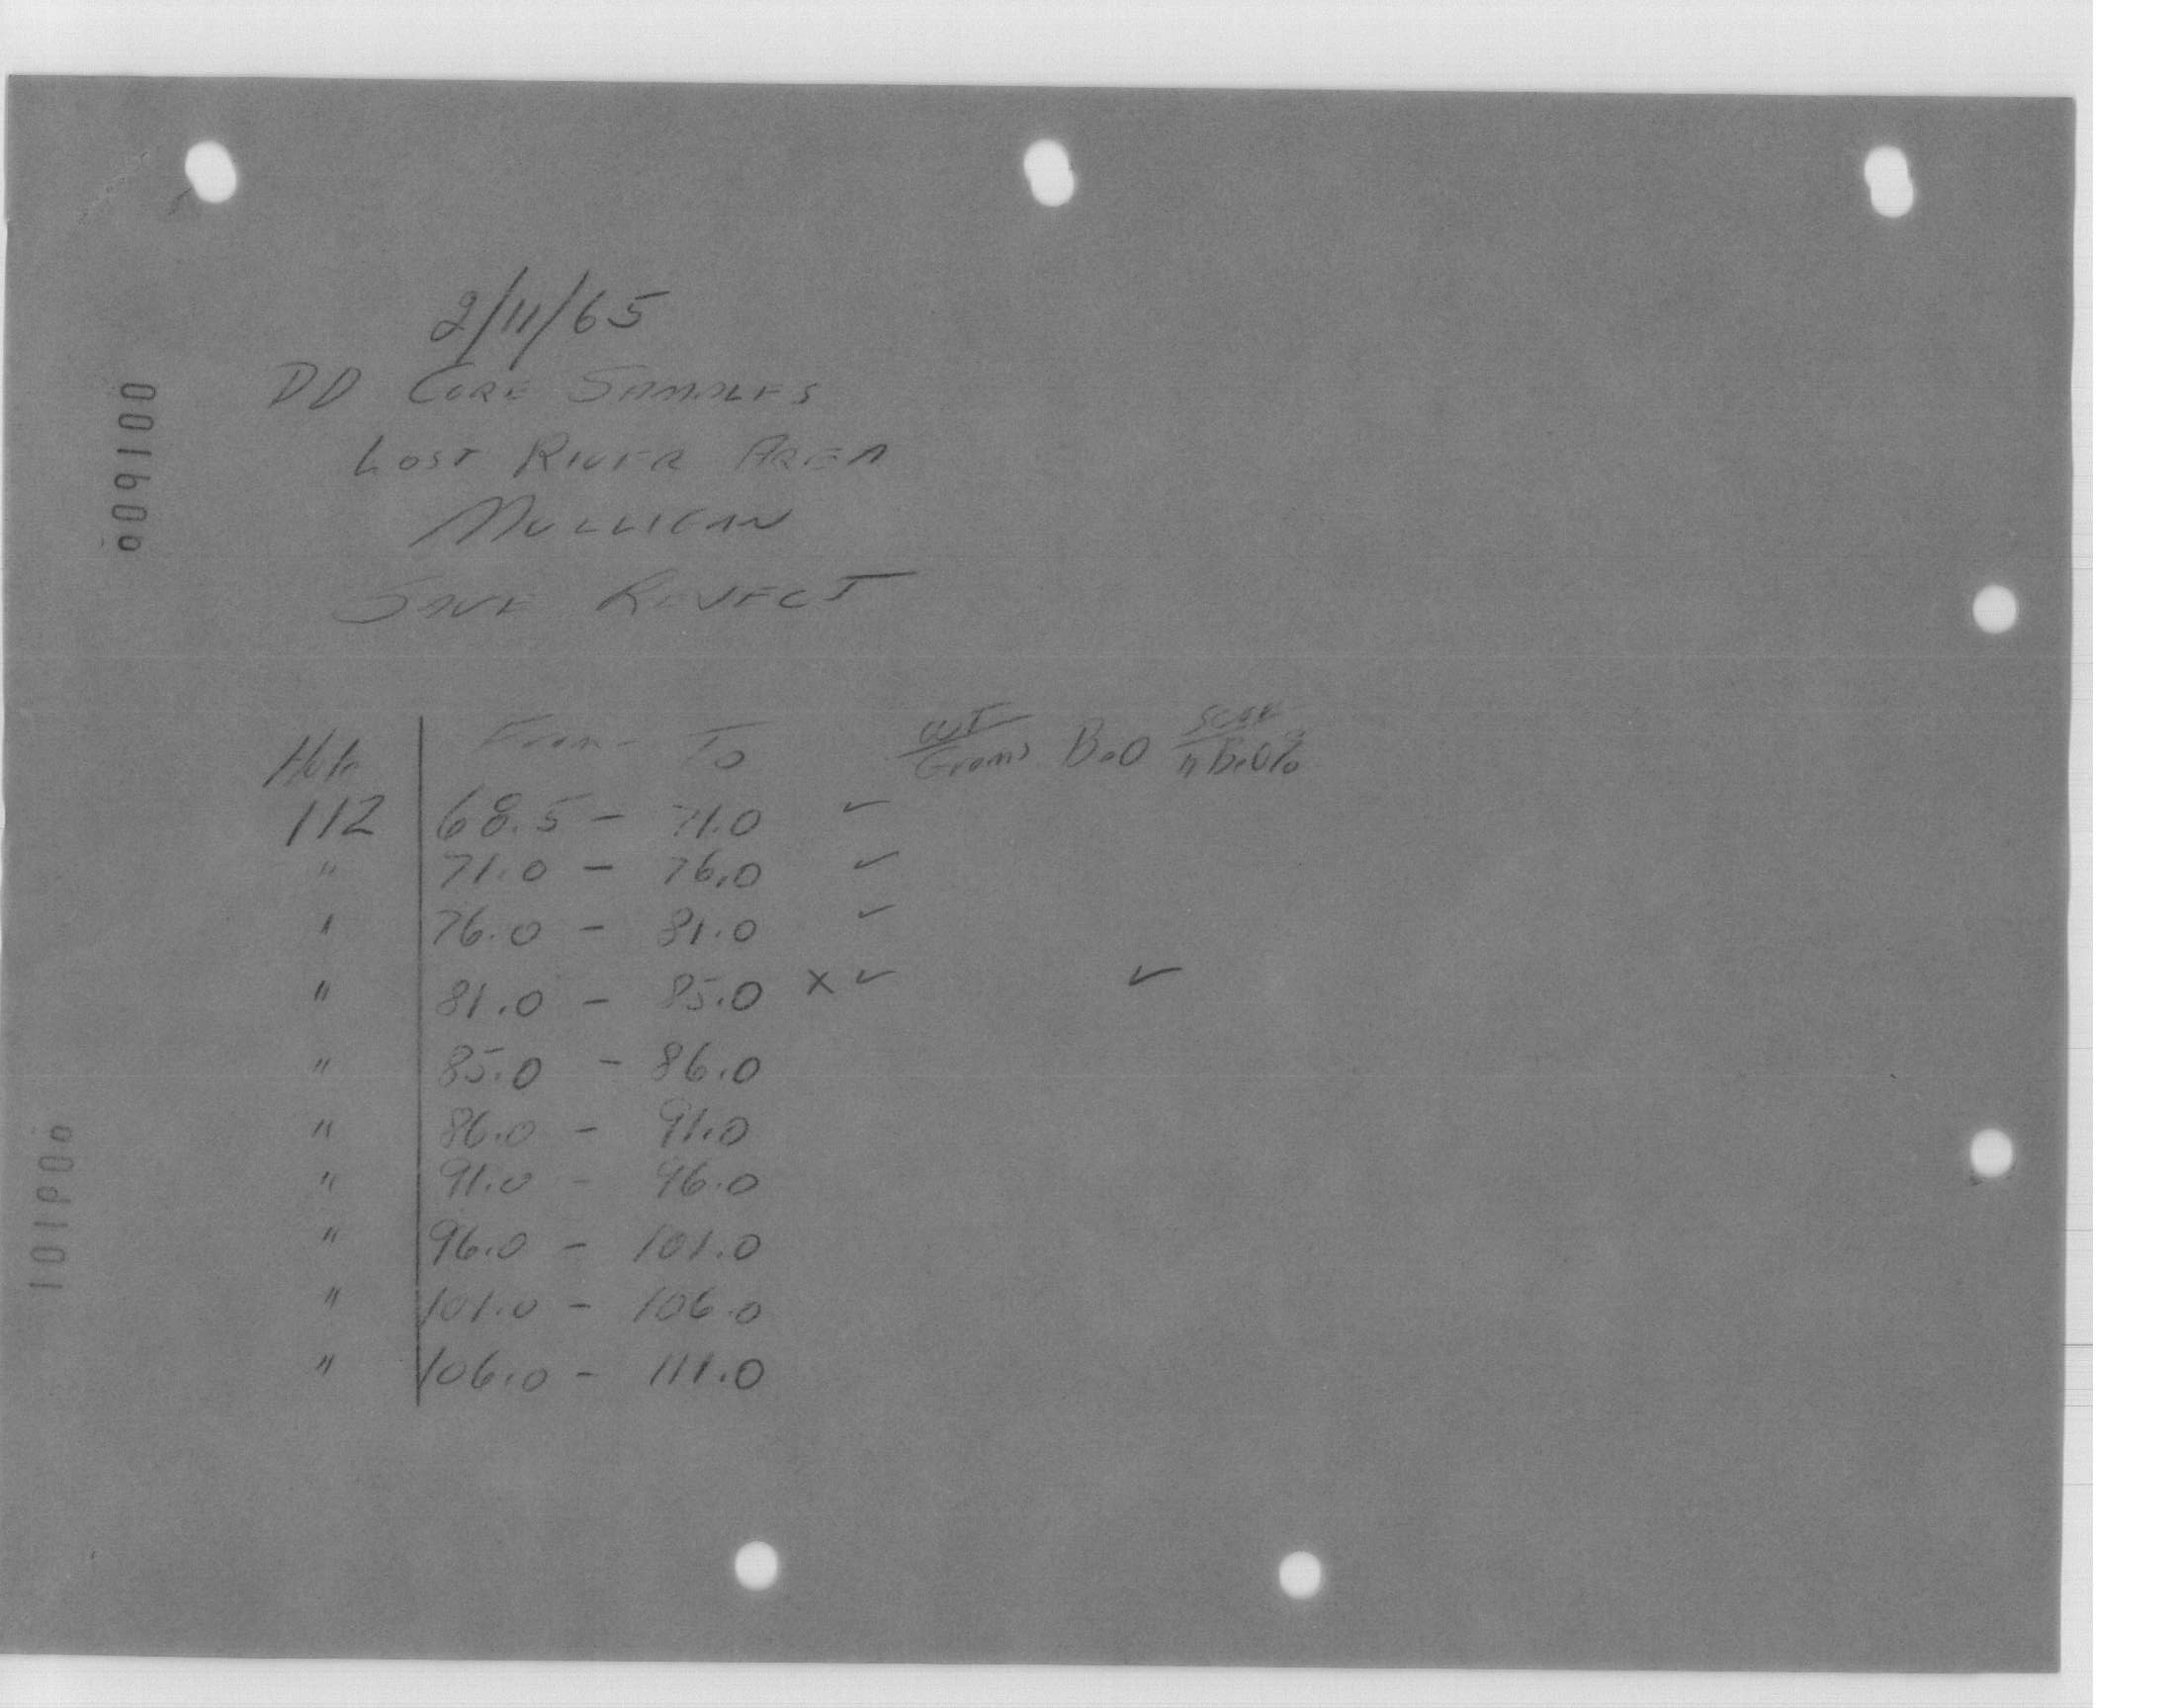 2/11/65
DD CORE SAMPLES
LOST RIVER AREA
MULLIGAN
SAVE REJECT
Hole From - To WT/Grams BeO BeO%
112 68.5 - 71.0 ✓
" 71.0 - 76.0 ✓
" 76.0 - 81.0 ✓
" 81.0 - 85.0 X ✓ ✓
" 85.0 - 86.0
" 86.0 - 91.0
" 91.0 - 96.0
" 96.0 - 101.0
" 101.0 - 106.0
" 106.0 - 111.0